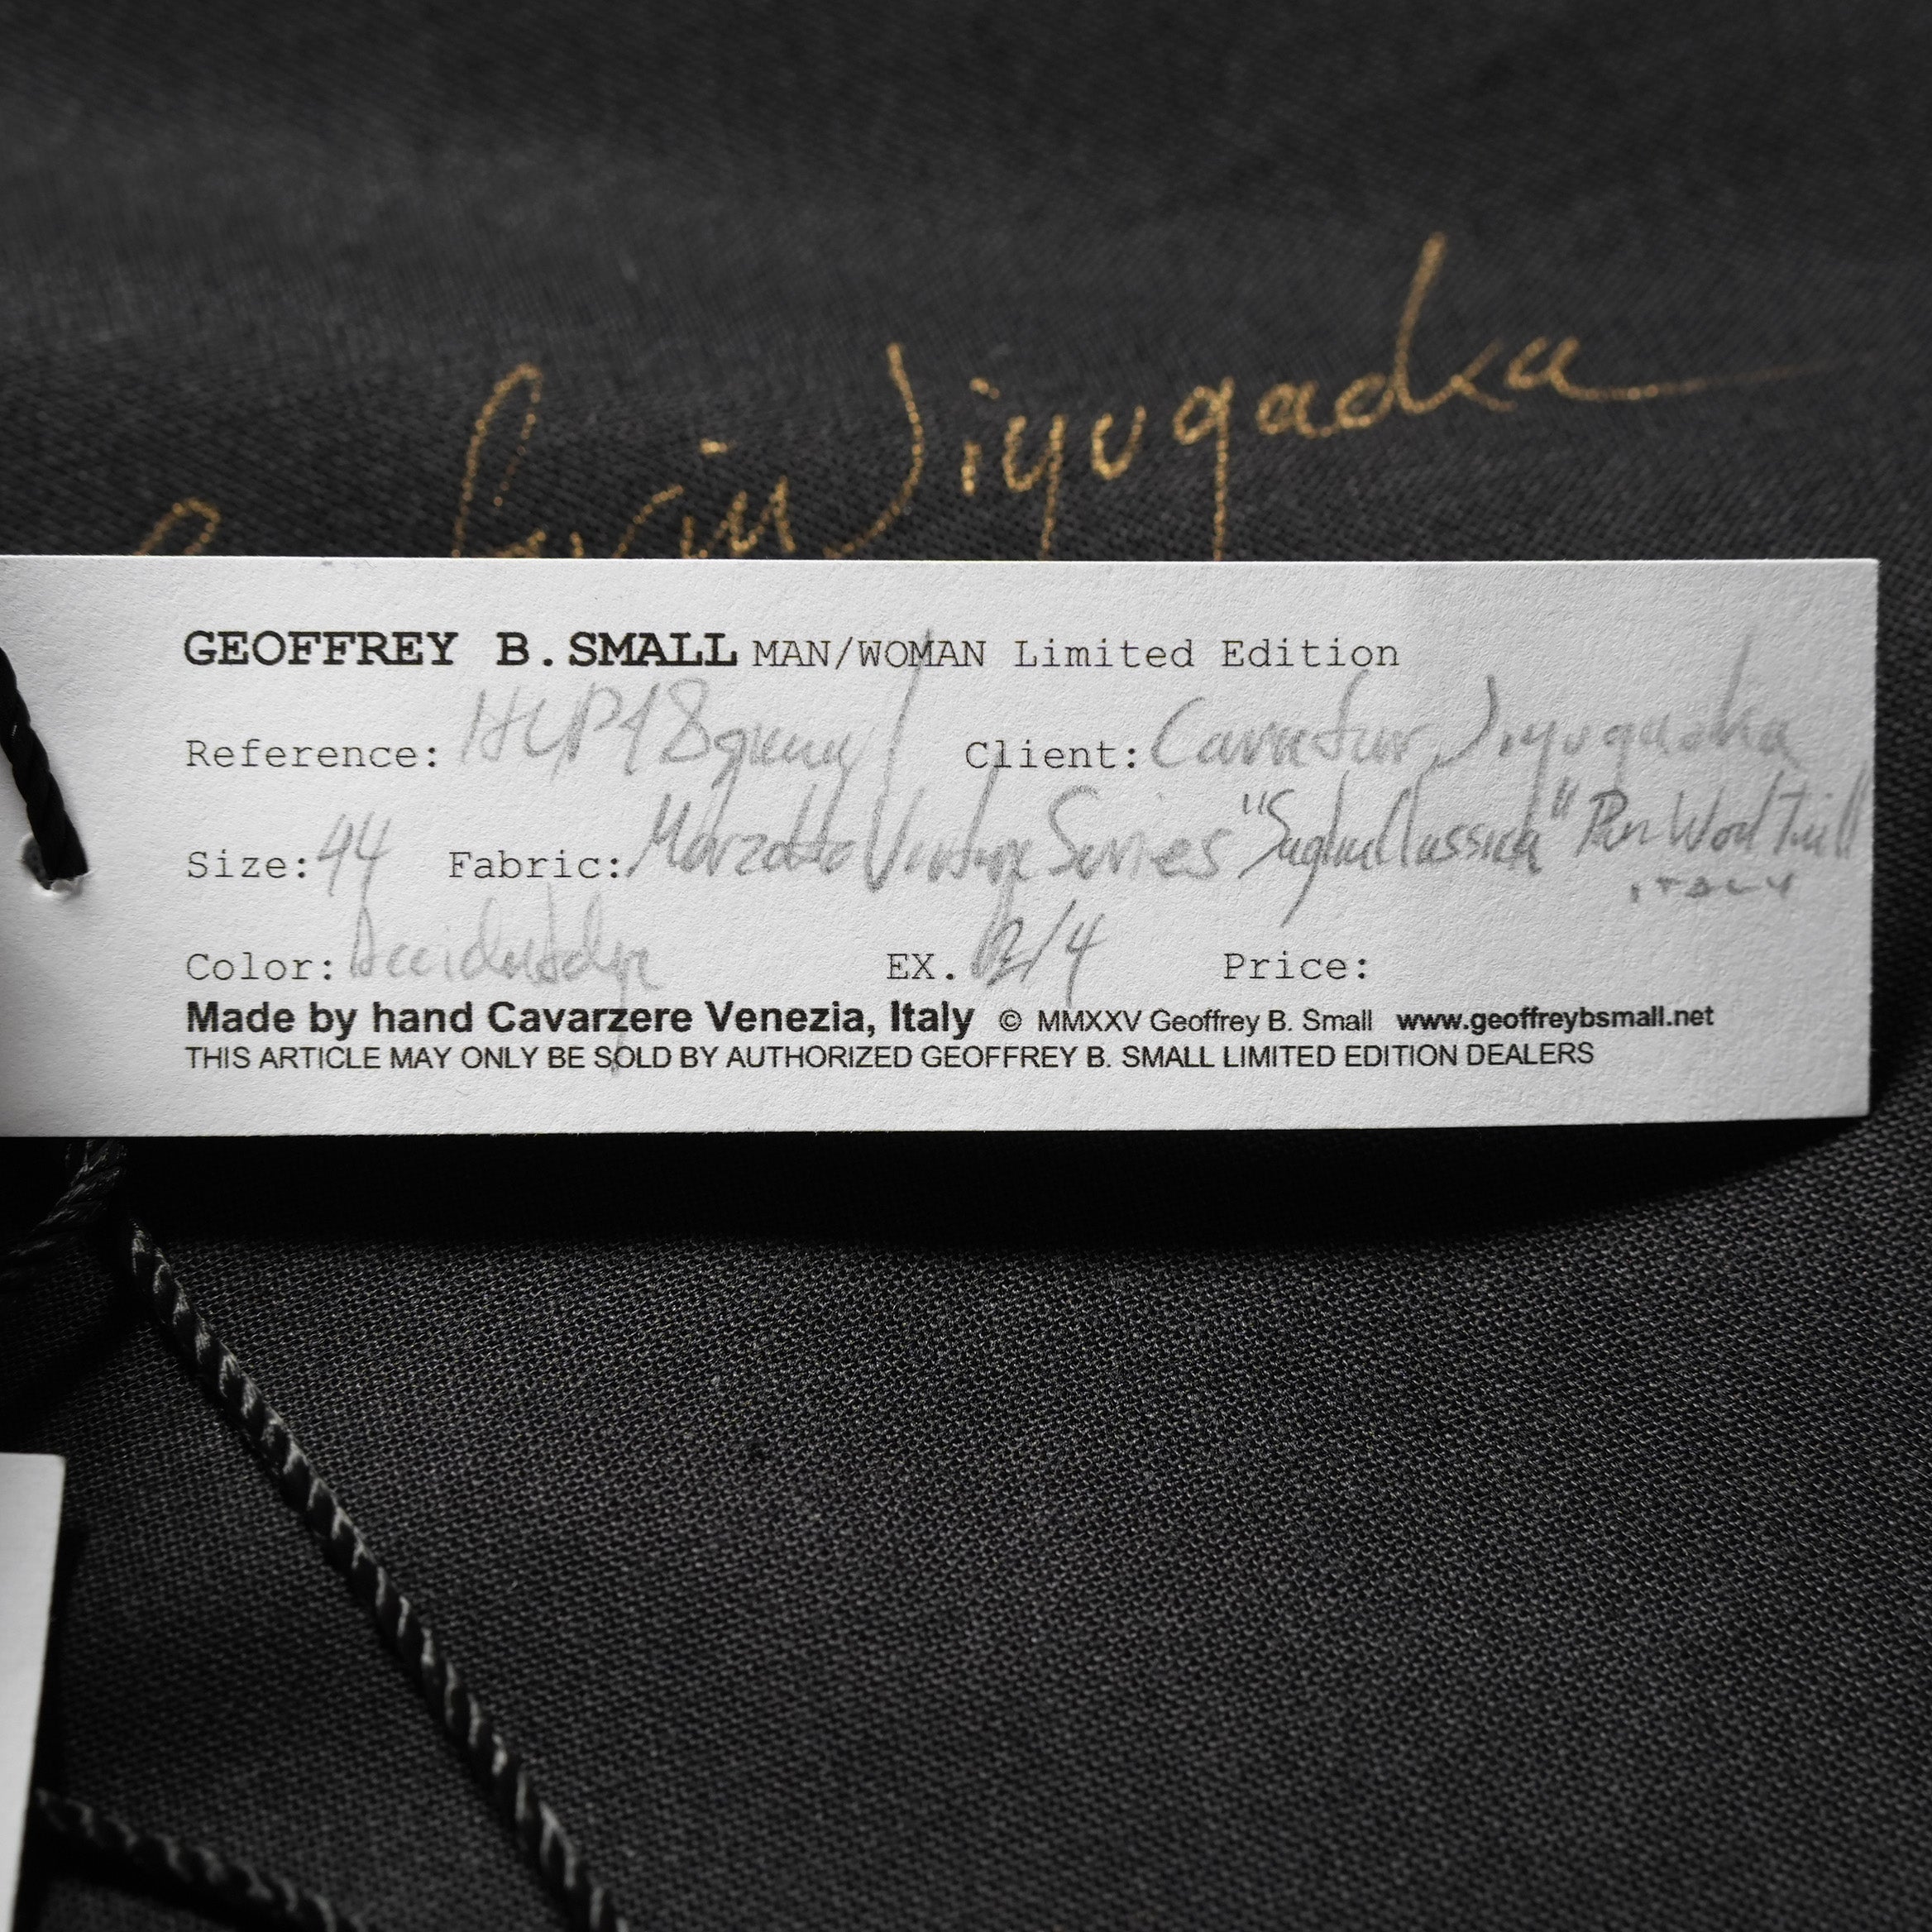 Jiyugaoka
GEOFFREY B.SMALL MAN/WOMAN Limited Edition
Reference: Client: Jiyugaoka
Size:44 Fabric: Marzotto Vintage Series " Classica" Pure Wool Twill
ITALY
Color: EX. 2/4 Price:
Made by hand Cavarzere Venezia, Italy © MMXXV Geoffrey B. Small www.geoffreybsmall.net
THIS ARTICLE MAY ONLY BE SOLD BY AUTHORIZED GEOFFREY B. SMALL LIMITED EDITION DEALERS